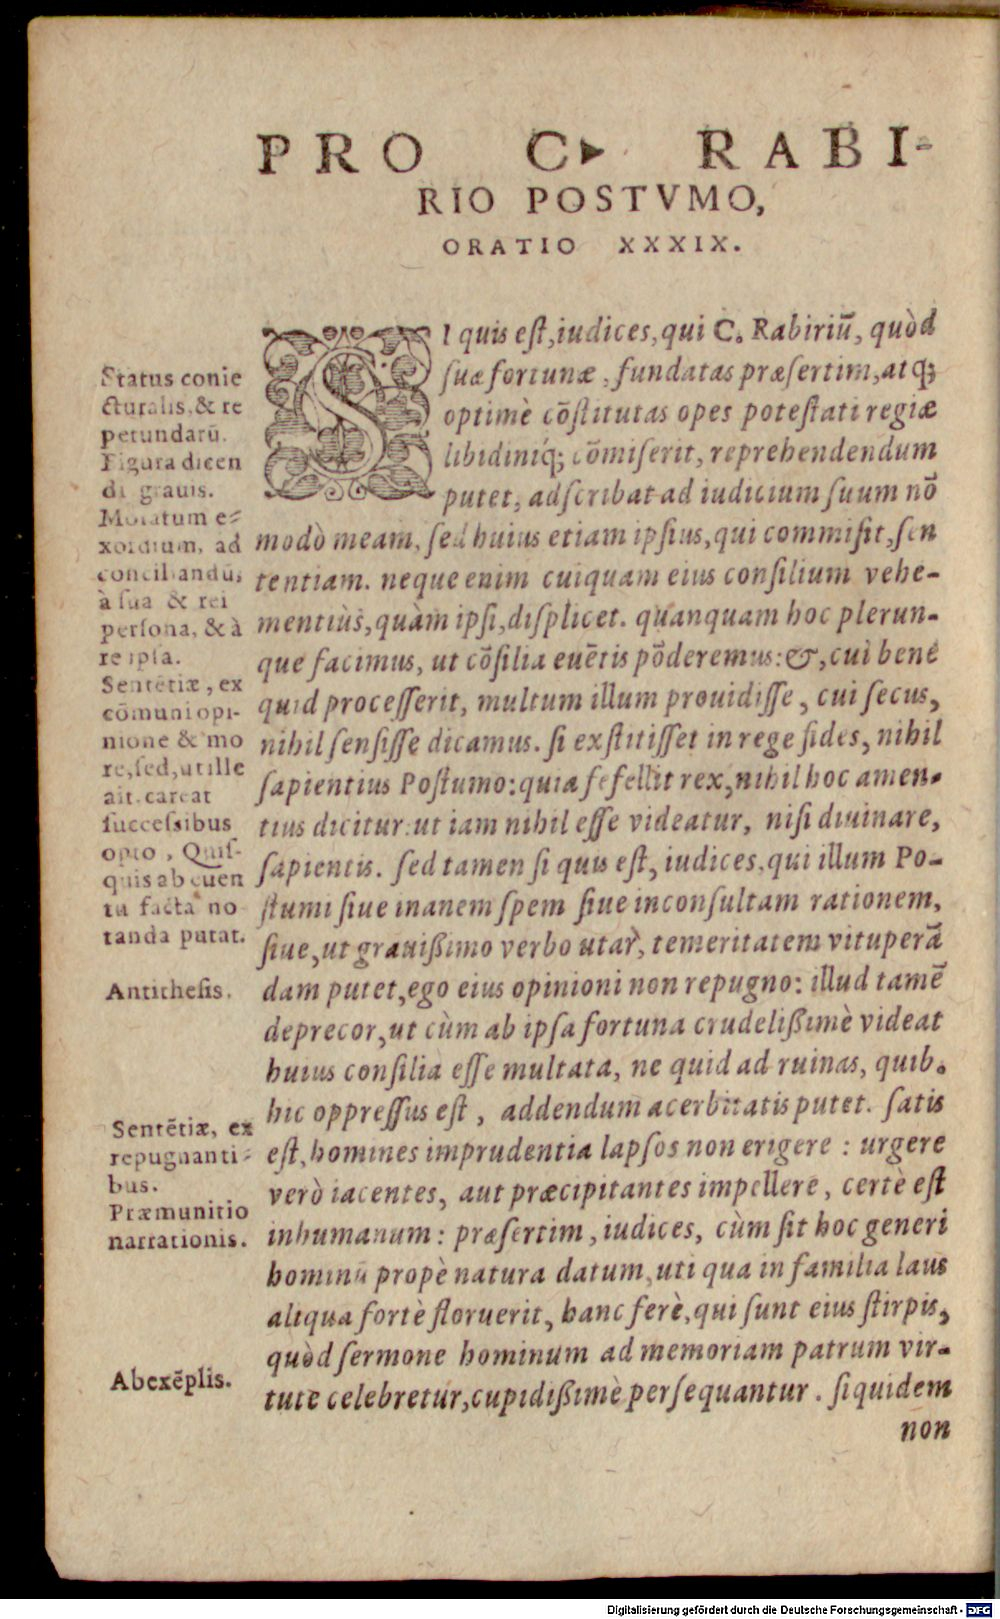 PRO C. RABI-
RIO POSTVMO,
ORATIO XXXIX.
SI quis est, iudices, qui C. Rabiriū, quòd
suæ fortunæ, fundatas præsertim, atq;
optimè cōstitutas opes potestati regiæ
libidiniq́; cōmiserit, reprehendendum
putet, adscribat ad iudicium suum nō
modò meam, sed huius etiam ipsius, qui commisit, sen
tentiam. neque enim cuiquam eius consilium vehe-
mentiùs, quàm ipsi, displicet. quanquam hoc plerun-
que facimus, ut cōsilia euētis pōderemus: &, cui bene
quid processerit, multum illum prouidisse, cui secus,
nihil sensisse dicamus. si exstitisset in rege fides, nihil
sapientius Postumo: quia fefellit rex, nihil hoc amen-
tius dicitur: ut iam nihil esse videatur, nisi diuinare,
sapientis. sed tamen si quis est, iudices, qui illum Po-
stumi siue inanem spem siue inconsultam rationem,
siue, ut grauißimo verbo utar, temeritatem vituperā
dam putet, ego eius opinioni non repugno: illud tamē
deprecor, ut cùm ab ipsa fortuna crudelißimè videat
huius consilia esse multata, ne quid ad ruinas, quib.
hic oppressus est, addendum acerbitatis putet. satis
est, homines imprudentia lapsos non erigere: urgere
verò iacentes, aut præcipitantes impellere, certè est
inhumanum: præsertim, iudices, cùm sit hoc generi
hominū propè natura datum, uti qua in familia laus
aliqua fortè floruerit, hanc ferè, qui sunt eius stirpis,
quòd sermone hominum ad memoriam patrum vir-
tute celebretur, cupidißimè persequantur. siquidem
non
Status conie
cturalis, & re
petundarū.
Figura dicen
di grauis.
Moratum e-
xordium, ad
conciliandū,
à sua & rei
persona, & à
re ipsa.
Sentētiæ, ex
cōmuni opi-
nione & mo
re, sed, ut ille
ait, careat
successibus
opto, Quis-
quis ab euen
tu facta no
tanda putat.
Antithesis.
Sentētiæ, ex
repugnanti-
bus.
Præmunitio
narrationis.
Ab exēplis.
Digitalisierung gefördert durch die Deutsche Forschungsgemeinschaft - DFG